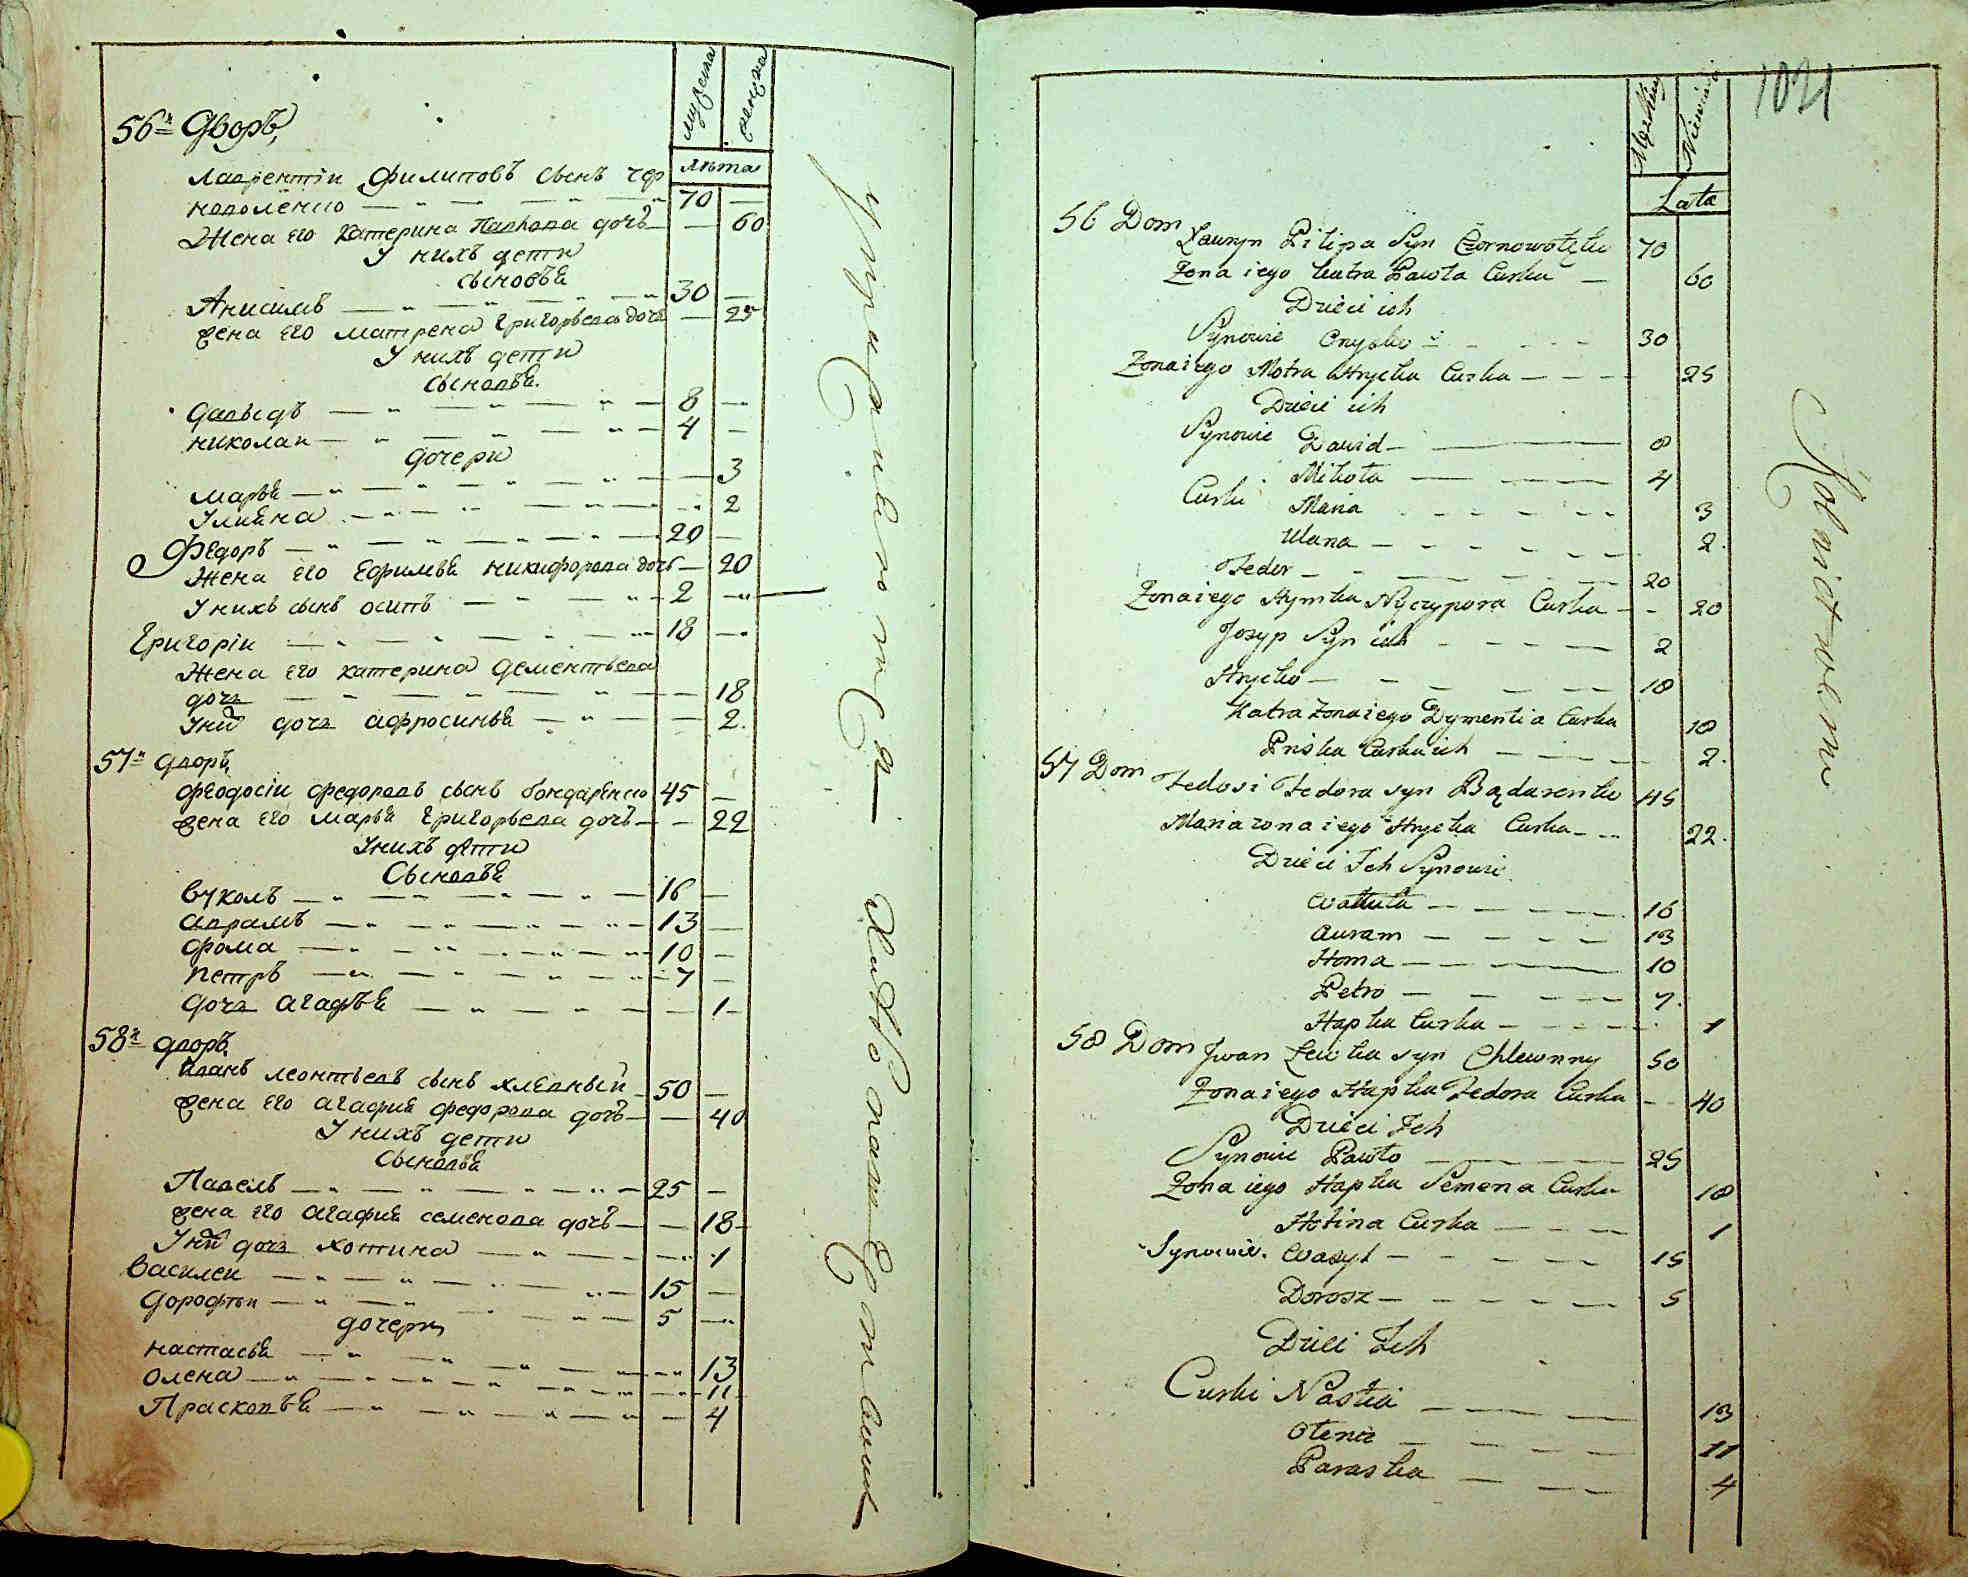 мужеска
женска
лѣта
56й Дворъ,
Лаврентіи Филиповъ сынъ чер
новоленко 70
Жена его Катерина Павлова дочъ 60
У нихъ дети
сыновья
Анисимъ 30
жена его матрена Григорьева дочъ 25
У нихъ дети
сыновья.
давыдъ 8
николаи 4
дочери
марья 3
Улияна 2
Федоръ 20
Жена его Ефимья никифорова дочь 20
У нихъ сынъ осипъ 2
Григоріи 18
Жена его катерина дементьева
дочъ 18
У ни дочъ афросинья 2.
57й дворъ,
феодосіи федоровъ сынъ бондаренко 45
жена его марья Григорьева дочъ 22
У нихъ дети
Сыновья
вуколъ 16
аврамъ 13
фома 10
петръ 7
дочъ агафья 1
58й дворъ,
Иванъ леонтьевъ сынъ хлевный 50
жена его агафия федорова дочъ 40
У нихъ дети
сыновья
Павелъ 25
жена его агафия семенова дочъ 18
У ни дочъ хотина 1
василеи 15
дорофеи 5
дочери,
настасья 13
олена 11
Прасковья 4
1021
Męzkiey
Lata
56 Dom Ławryn Pilipa Syn Czornowołęko 70
Zona iego katra Pawła Curka 60
Dzieci ich
Synowie Onysko 30
Zona iego Motra Hrycka Curka 25
Dzieci ich
Synowie Dawid 8
Mikoła 4
Curki Maria 3
Ulana 2.
Fedor 20
Zona iego Hymka Nyczypora Curka 20
Jozyp Syn ich 2
Hrycko 18
Katra Zona iego Dymentia Curka 18
Priska Curka ich 2.
57 Dom Fedosi Fedora syn Bądarenko 45
Maria zona iego Hrycka Curka 22.
Dzieci Ich Synowie
Wakuła 16
Auram 13
Homa 10
Petro 7.
Hapka Curka 1
58 Dom Jwan Lewka syn Chlewnny 50
Zona iego Hapka Fedora Curka 40
Dzieci Ich
Synowie Pawło 25
Zona iego Hapka Semena Curka 18
Hotina Curka 1
Synowie. Wasyl 15
Dorosz 5
Dzieci Ich
Curki Nastia 13
Olena 11
Paraska 4